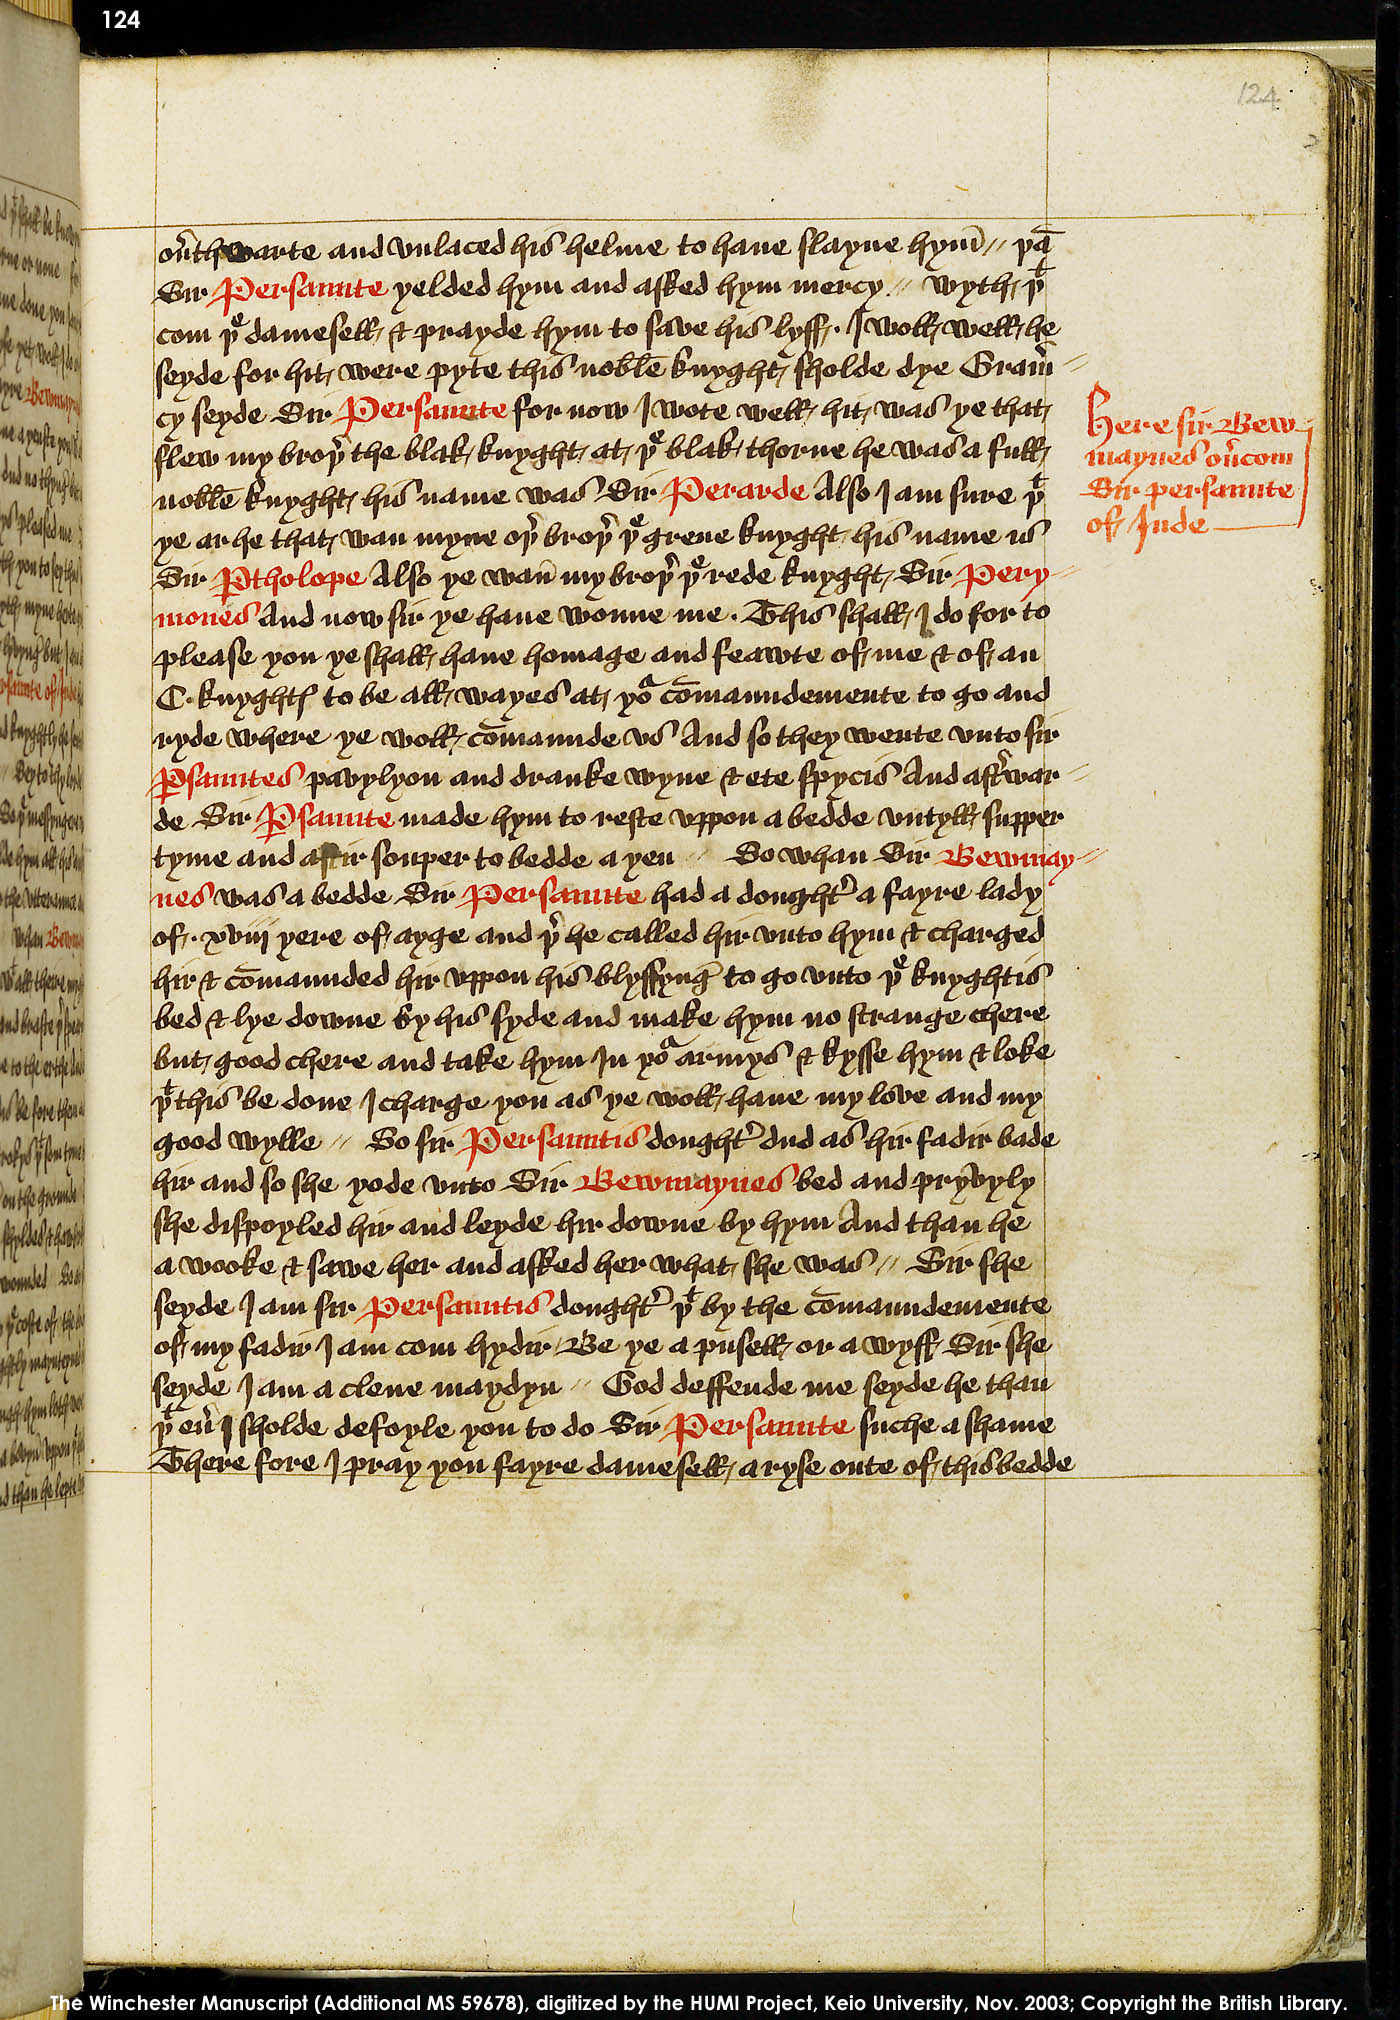 124
124
ou͛thwarte and vnlaced his helme to haue slayne hym̄ // þā
Sir Persaunte yelded hym and asked hym mercy // Wyth þᵗ
com þᵉ damesell & prayde hym to save his lyff · I woll well he
seyde for hit were pyte this noble knyght sholde dye Gram̄
cy seyde Sir Persaunte for now I wote well hit was ye that
slew my broþ͛ the blak knyght at þᵉ blak thorne he was a full
noble knyght his name was Sir Perarde Also I am sure þᵗ
ye ar he that wan myne oþ͛ broþ͛ þᵉ grene knyght his name is
Sir Ptholope Also ye wan̄ my broþ͛ þᵉ rede knyght Sir Pery
mones And now sir ye haue wonne me · This shall I do for to
please you ye shall haue homage and feawte of me & of an
C · knyghtꝭ to be all wayes at yoᵃ cōmaundemente to go and
ryde where ye woll cōmaunde vs And so they wente vnto sir
Ꝑsauntes pavylyon and dranke wyne & ete spycis And aft͛war
de Sir Ꝑsaunte made hym to reste vppon a bedde vntyll supper
tyme and aftir souper to bedde a yen // So whan Sir Bewmay
nes was a bedde Sir Persaunte had a dought͛ a fayre lady
of · xviij yere of ayge and þ͛ he called hir vnto hym & charged
hir & cōmaunded hir vppon his blyssynḡ to go vnto þᵉ knyghtis
bed & lye downe by his syde and make hym no strange chere
but good chere and take hym In yoᵃ armys & kysse hym & loke
þᵗ this be done I charge you as ye woll haue my love and my
good wylle // So sir Persauntis dought͛ dud as hir fadir bade
hir and so she yode vnto Sir Bewmaynes bed and pryvyly
she dispoyled hir and leyde hir downe by hym And than he
a wooke & sawe her and asked her what she was // Sir she
seyde I am sir Persauntis dought͛ þᵗ by the cōmaundemente
of my fadir I am com hydir Be ye a pusell or a wyff Sir she
seyde I am a clene maydyn // God deffende me seyde he than
þᵗ eu͛ I sholde defoyle you to do Sir Persaunte suche a shame
There fore I pray you fayre damesell a ryse oute of this bedde
Here sir Bew
maynes ou͛com
Sir persaunte
of Inde
The Winchester Manuscript (Additional MS 59678), digitized by the HUMI Project, Keio University, Nov. 2003; Copyright the British Library.